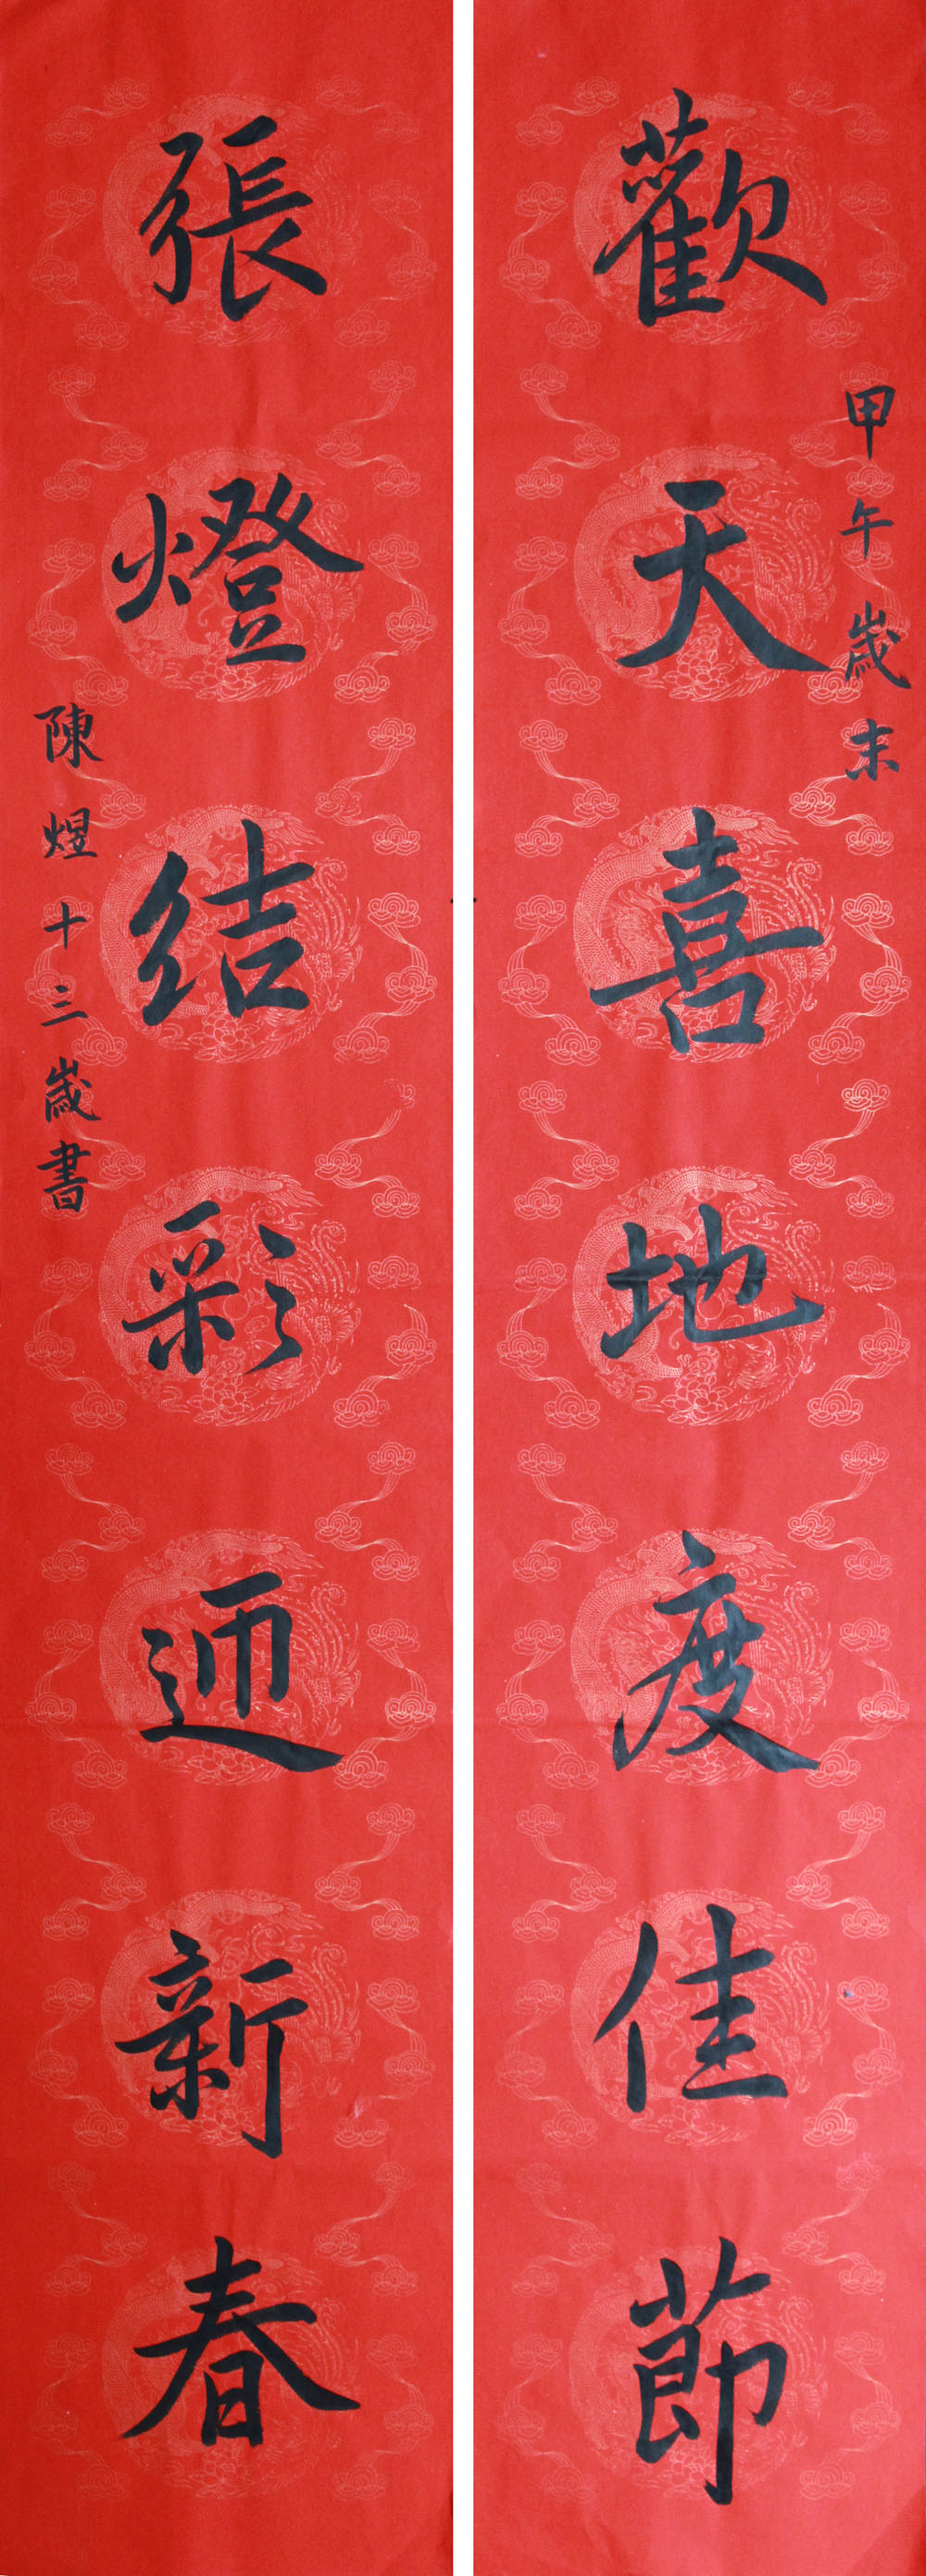 甲午歲末
歡天喜地度佳節
張燈结彩迊新春
陳煜十三歲書